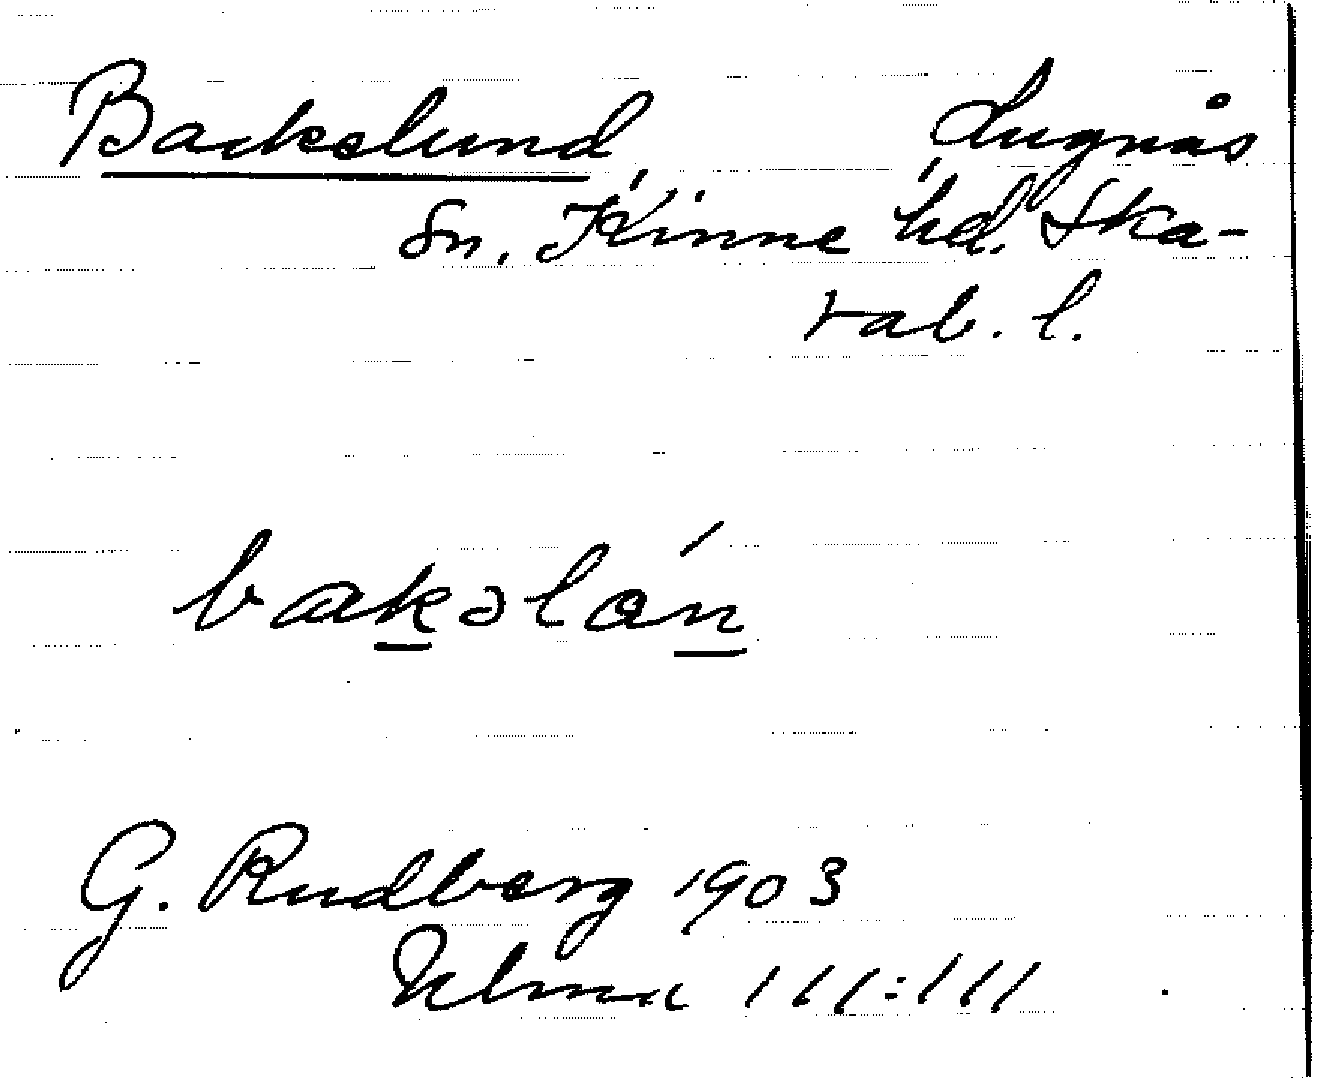 Backelund Lugnås
Sn. Kinne hd. Ska-
rab. l.
bakəlán
G. Rudberg 1903